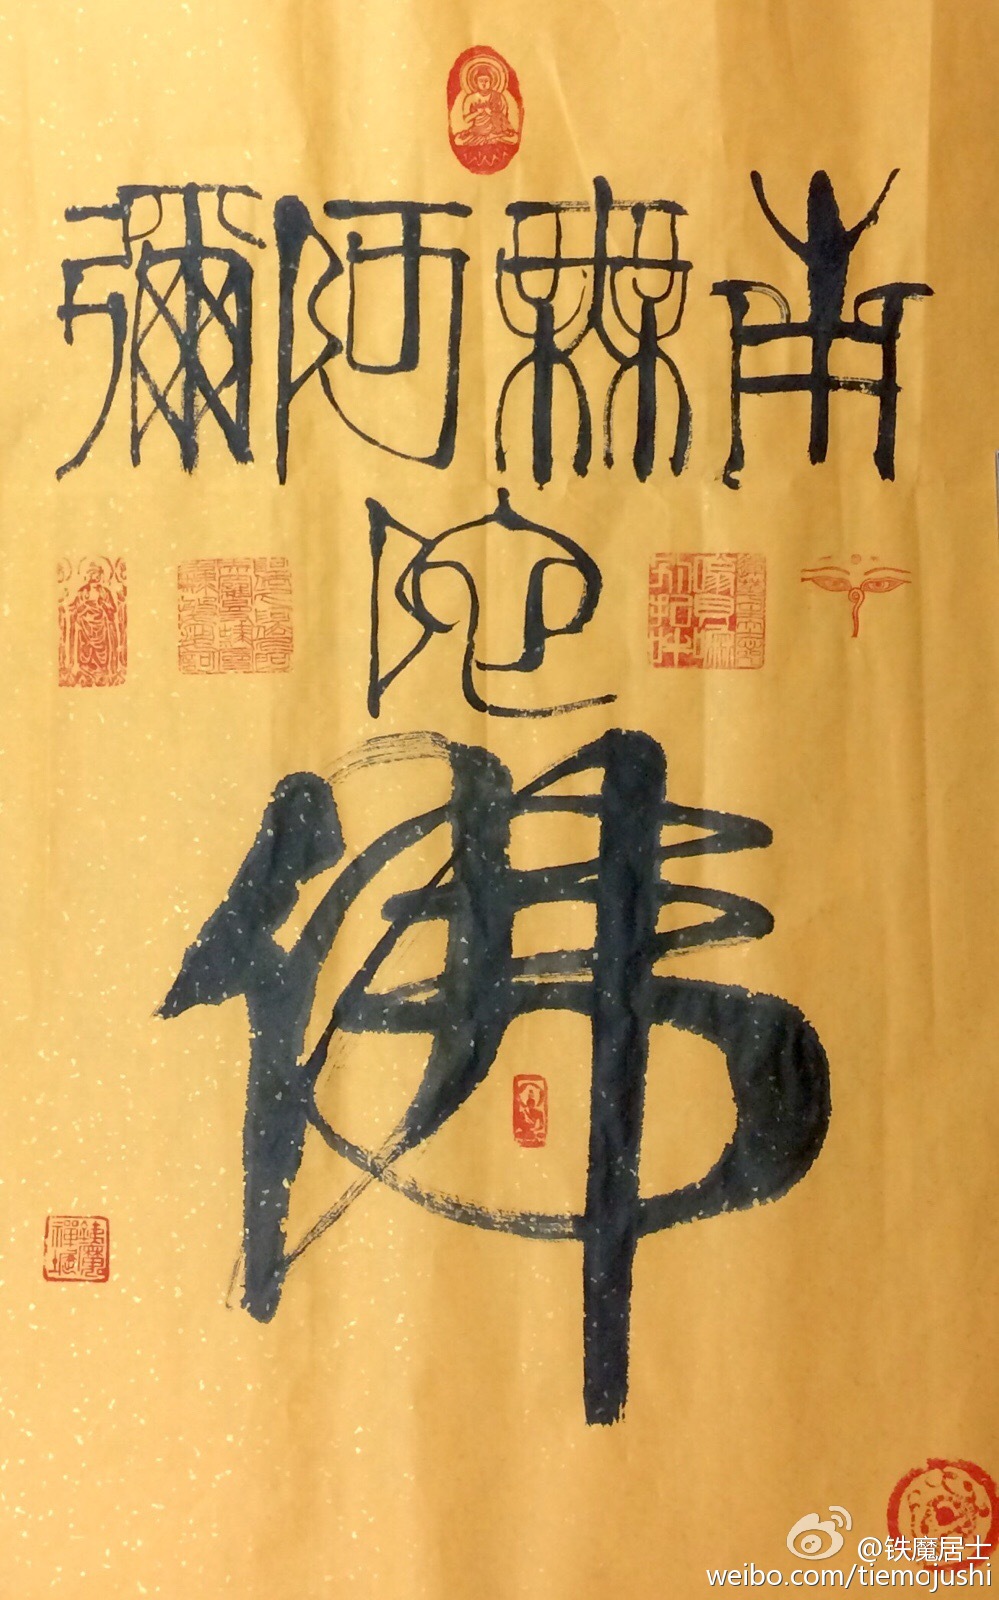 南無阿彌
陀
佛
@铁魔居士
weibo.com/tiemojushi